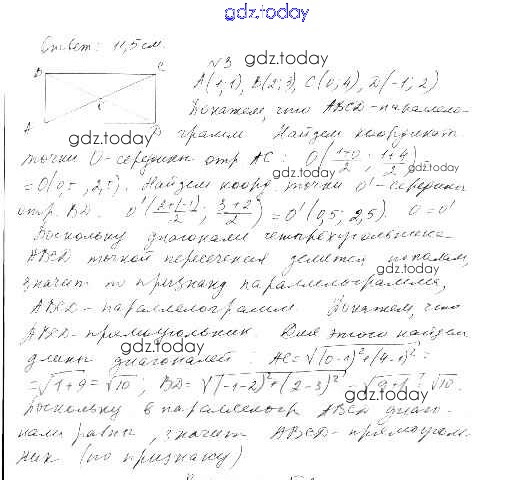 gdz.today
Ответ: 11,5 см.
№3
gdz.today
B C
A(1;1), B(2;3), C(0;4), D(-1;2)
Докажем, что ABCD - паралле-
A D
gdz.today
грамм. Найдем координаты
точки O - середины отр AC: O(1+0/2; 1+4/2)
gdz.today
gdz.today
= O(0,5; 2,5). Найдем коорд. точки O' - середины
отр. BD. O'(2+(-1)/2; 3+2/2) = O'(0,5; 2,5). O = O'
gdz.today
Поскольку диагонали четырехугольника
ABCD точкой пересечения делятся попалам,
gdz.today
значит по признаку параллелограмма,
ABCD - параллелограмм. Докажем, что
gdz.today
ABCD - прямоугольник. Для этого найдем
длины диагоналей: AC = √(0-1)²+(4-1)² =
gdz.today
= √1+9 = √10; BD = √(-1-2)²+(2-3)² = √9+1 = √10.
gdz.today
Поскольку в параллелогр ABCD диаго-
нали равны, значит ABCD - прямоуголь-
gdz.today
ник (по признаку)